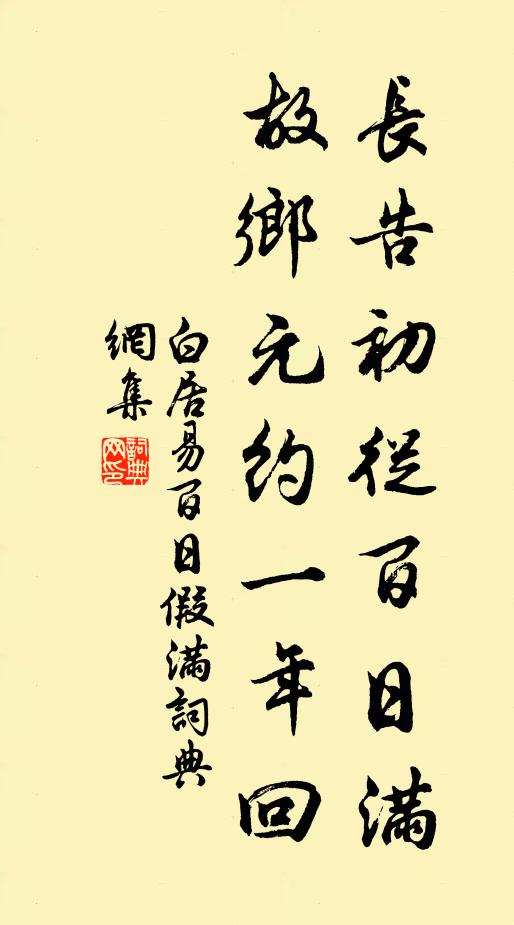 長告初從百日滿
故鄉元約一年回
白居易百日假滿詞典
網集
詞典網印